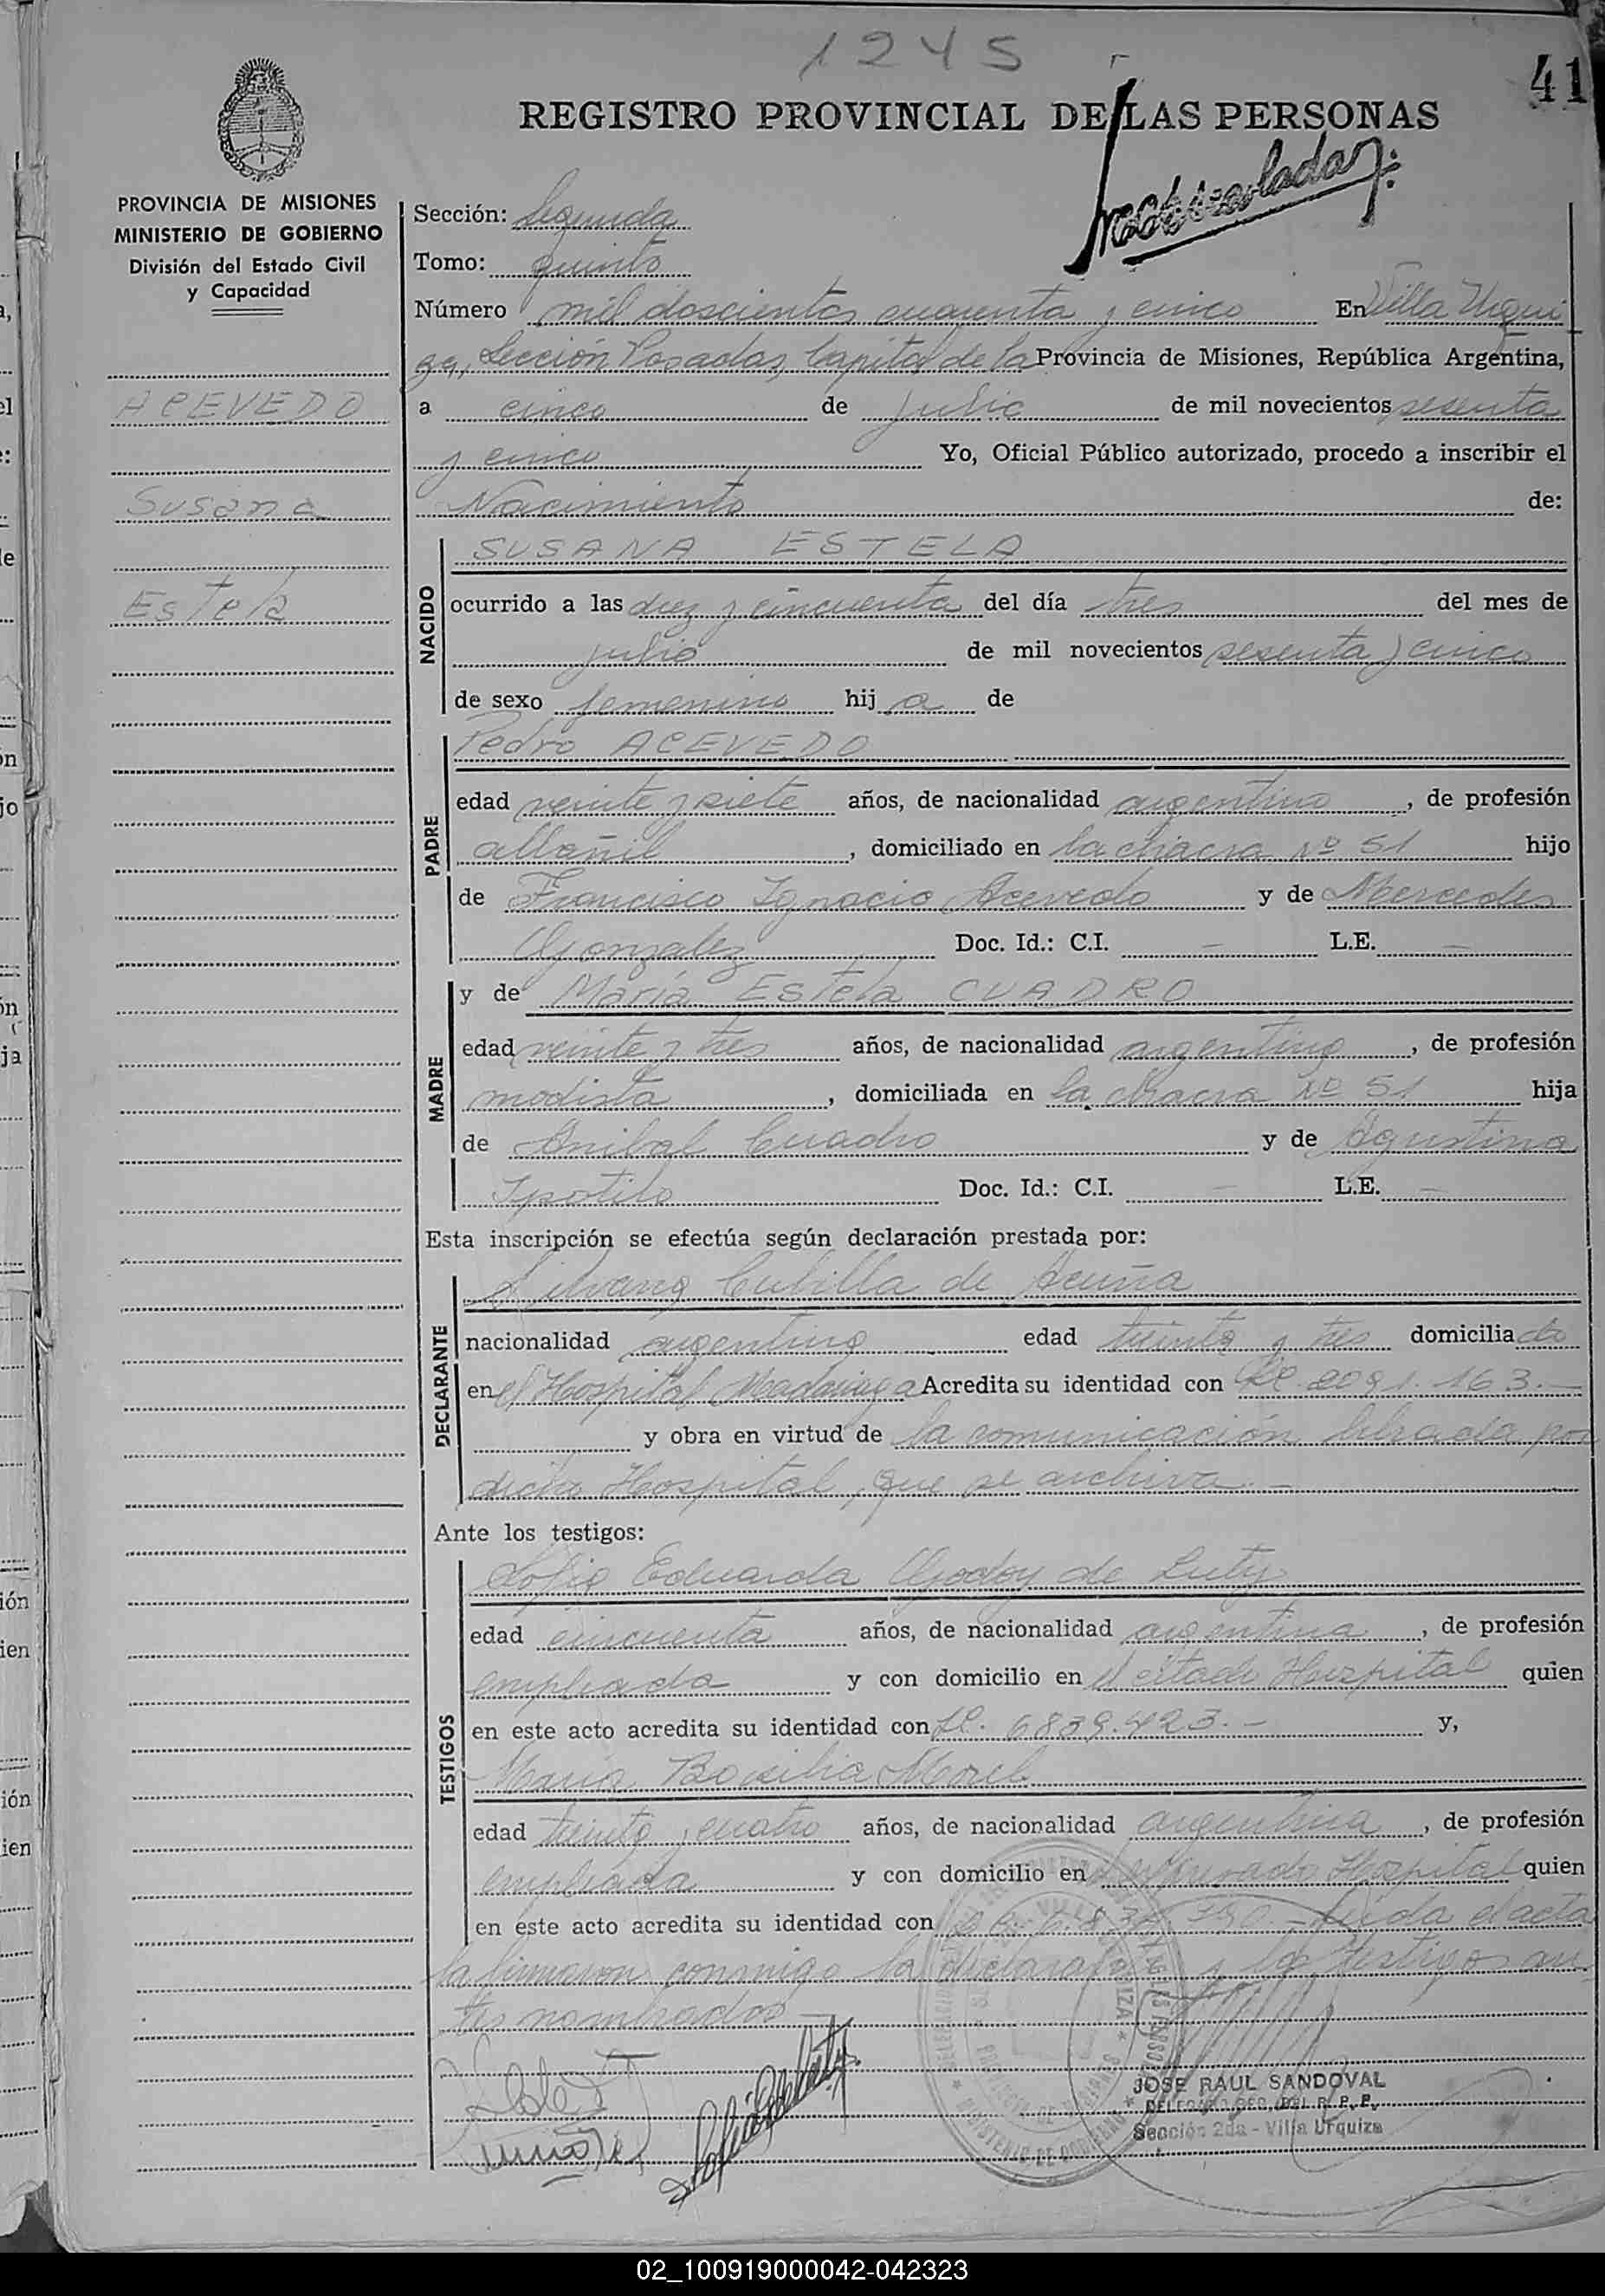 1245
41
REGISTRO PROVINCIAL DE LAS PERSONAS
PROVINCIA DE MISIONES
MINISTERIO DE GOBIERNO
División del Estado Civil
y Capacidad
ACEVEDO
Susana
Estela
Sección: Segunda
Tomo: quinto
Número mil doscientos cuarenta y cinco En Villa Urqui
za, Sección Posadas, Capital de la Provincia de Misiones, República Argentina,
a cinco de julio de mil novecientos sesenta
y cinco Yo, Oficial Público autorizado, procedo a inscribir el
Nacimiento de:
NACIDO
SUSANA ESTELA
ocurrido a las diez y cincuenta del día tres del mes de
julio de mil novecientos sesenta y cinco
de sexo femenino hij a de
PADRE
Pedro ACEVEDO
edad veinte y siete años, de nacionalidad argentino, de profesión
albañil, domiciliado en la chacra nº 51 hijo
de Francisco Ignacio Acevedo y de Mercedes
Gonzalez Doc. Id.: C.I. — L.E. —
MADRE
y de María Estela CUADRO
edad veinte y tres años, de nacionalidad argentina, de profesión
modista, domiciliada en la chacra nº 51 hija
de Anibal Cuadro y de Agustina
Doc. Id.: C.I. — L.E. —
Esta inscripción se efectúa según declaración prestada por:
DECLARANTE
Silvana Cubilla de Acuña
nacionalidad argentina edad treinta y tres domicilia da
en el Hospital Madariaga Acredita su identidad con 2091.163.—
y obra en virtud de la comunicación librada por
dicho Hospital, que se archiva.—
Ante los testigos:
TESTIGOS
Sofia Eduarda Godoy de Luty
edad cincuenta años, de nacionalidad argentina, de profesión
empleada y con domicilio en el citado Hospital quien
en este acto acredita su identidad con 6839.423.— y,
María Morel
edad treinta y cuatro años, de nacionalidad argentina, de profesión
empleada y con domicilio en Hospital quien
en este acto acredita su identidad con Leida el acta
la firmaron conmigo la declarante y los testigos an
tes nombrados —
JOSE RAUL SANDOVAL
Sección 2da - Villa Urquiza
02_100919000042-042323